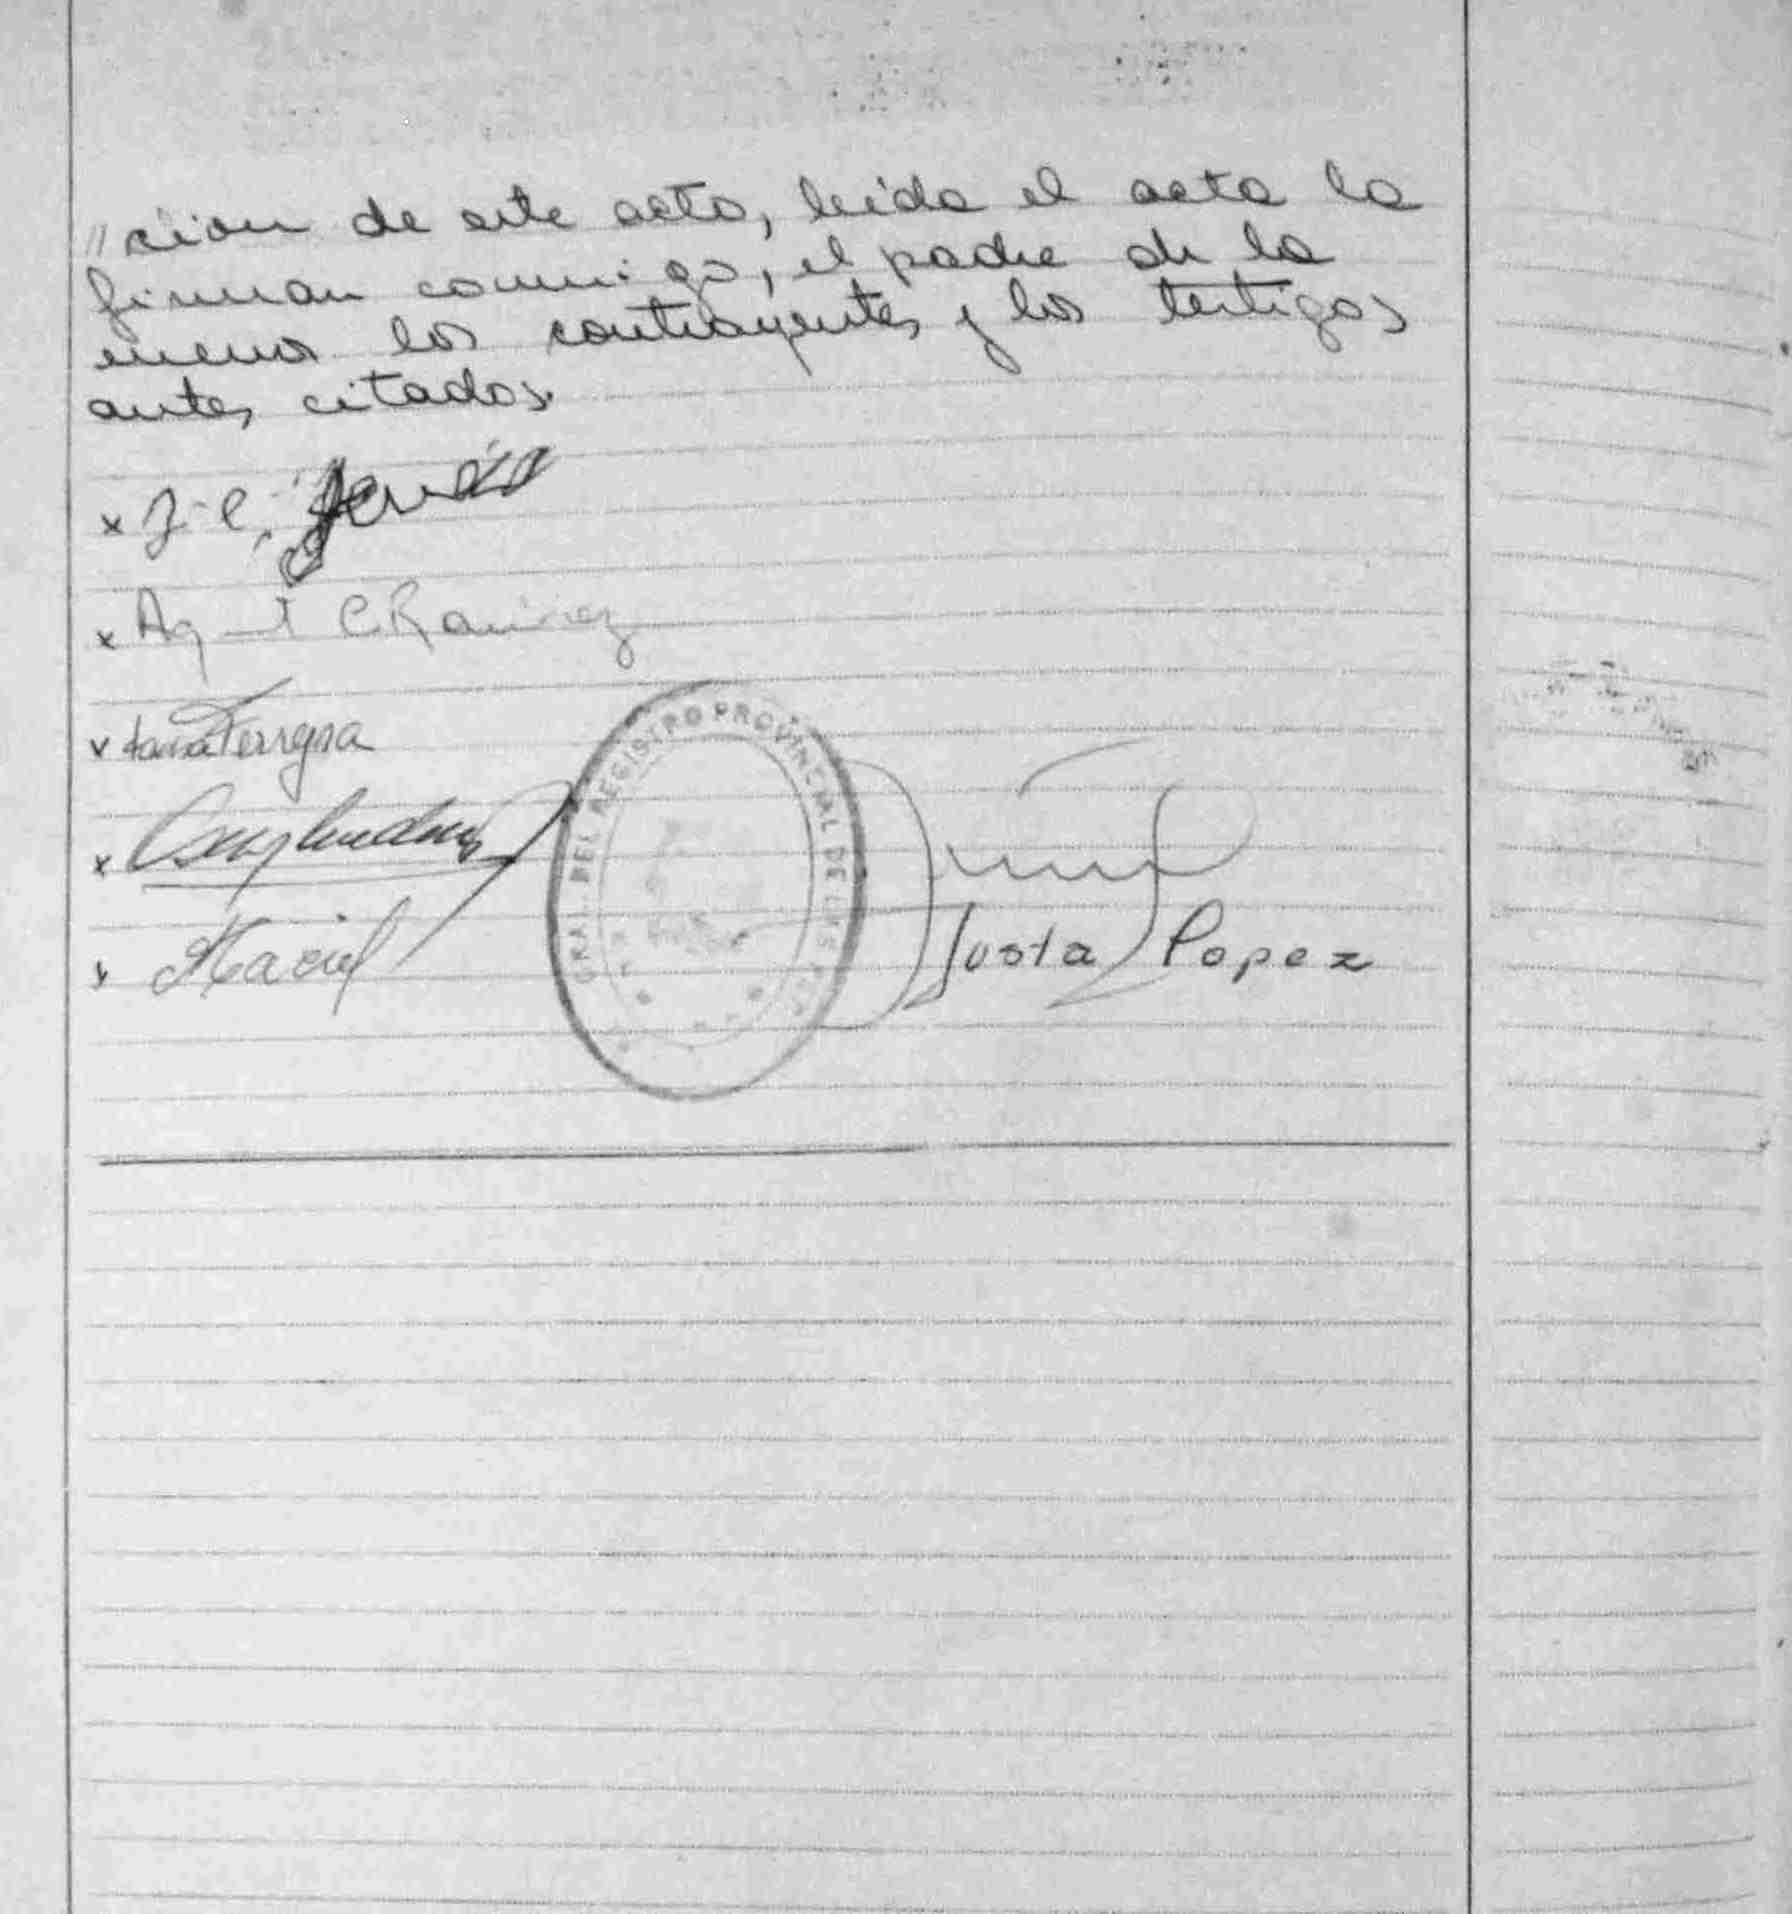 "ción de este acto, leída el acta la
firman conmigo, el padre de la
menor los contrayentes y los testigos
antes citados.
x J. C.
x C Ramirez
x Ferreyra
x
x Maciel
GRAL. DEL REGISTRO PROVINCIAL DE LAS
Justa Lopez